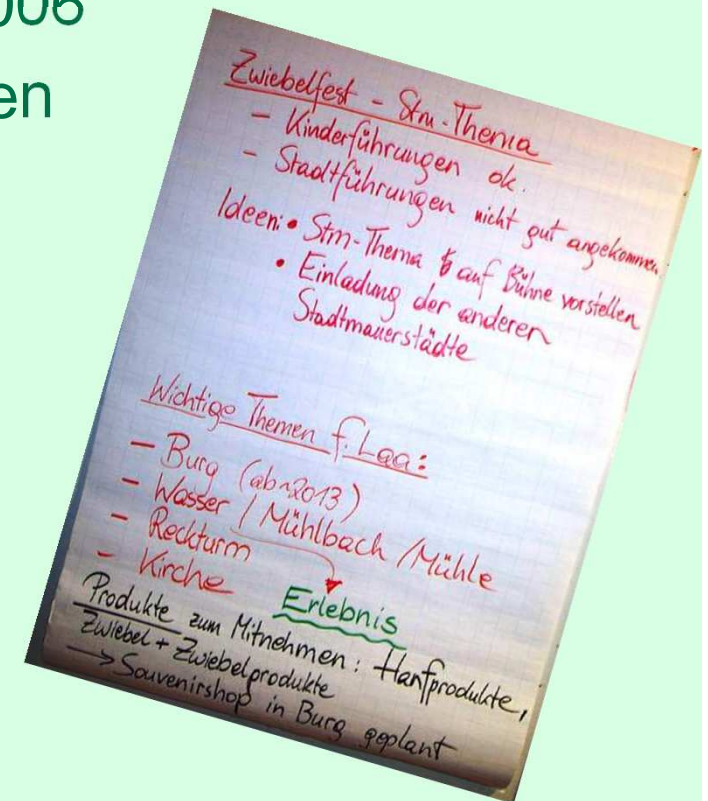 006
en
Zwiebelfest - Stm-Thema
- Kinderführungen ok.
- Stadtführungen nicht gut angekommen.
Ideen: • Stm-Thema auf Bühne vorstellen
• Einladung der anderen
Stadtmauerstädte
Wichtige Themen f. Laa:
- Burg (ab~2013)
- Wasser / Mühlbach / Mühle
- Reckturm
- Kirche
Erlebnis
Produkte zum Mitnehmen: Hanfprodukte,
Zwiebel + Zwiebelprodukte
-> Souvenirshop in Burg geplant